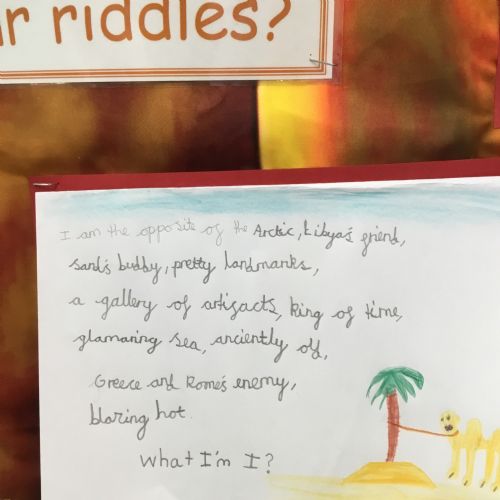 r riddles?
I am the opposite of the Arctic, Libya's friend,
sand's buddy, pretty landmarks,
a gallery of artifacts, king of time,
glamaring sea, anciently old,
Greece and Rome's enemy,
blazing hot.
What I'm I?